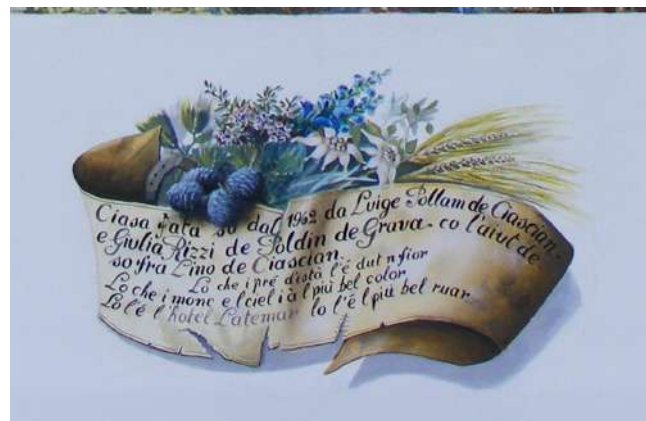 Ciasa fata so dal 1962 da Luige Pollam de Ciascian.
e Giulia Rizzi de Poldin de Grava. co l'aiut de
so fra Lino de Ciascian.
Lo che i pré d'istà l'é dut n fior
Lo che i monc e l ciel i à l più bel color
Lo l'é l hotel Latemar lo l'é l più bel ruar